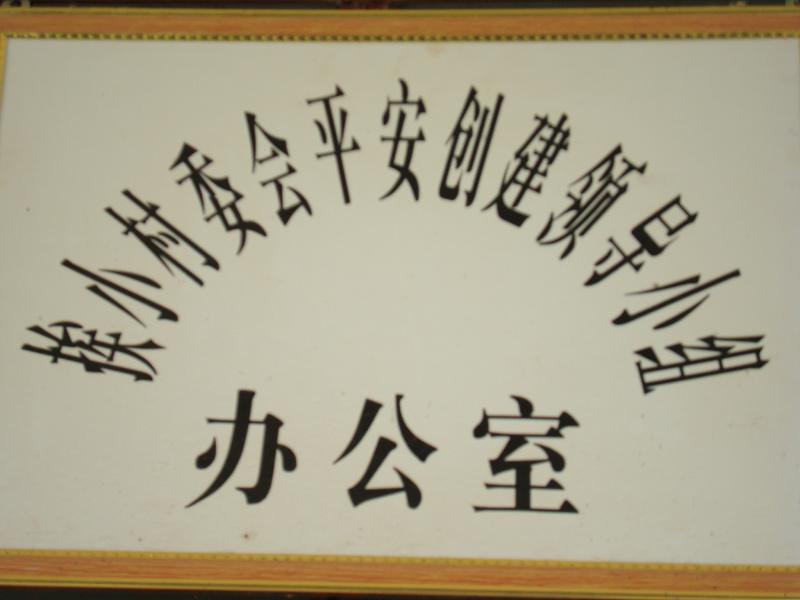 探小村委会平安创建领导小组
办公室